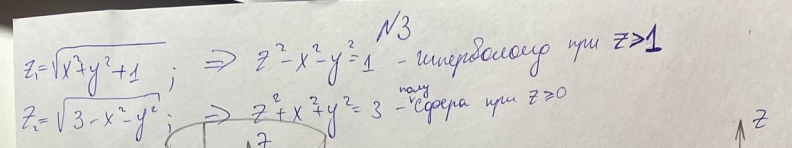 N3
z₁=√x²+y²+1 ; ⇒ z²-x²-y²=1 - гиперболоид при z≥1
z₂=√3-x²-y² ; ⇒ z²+x²+y²=3 - полусфера при z≥0
z
z